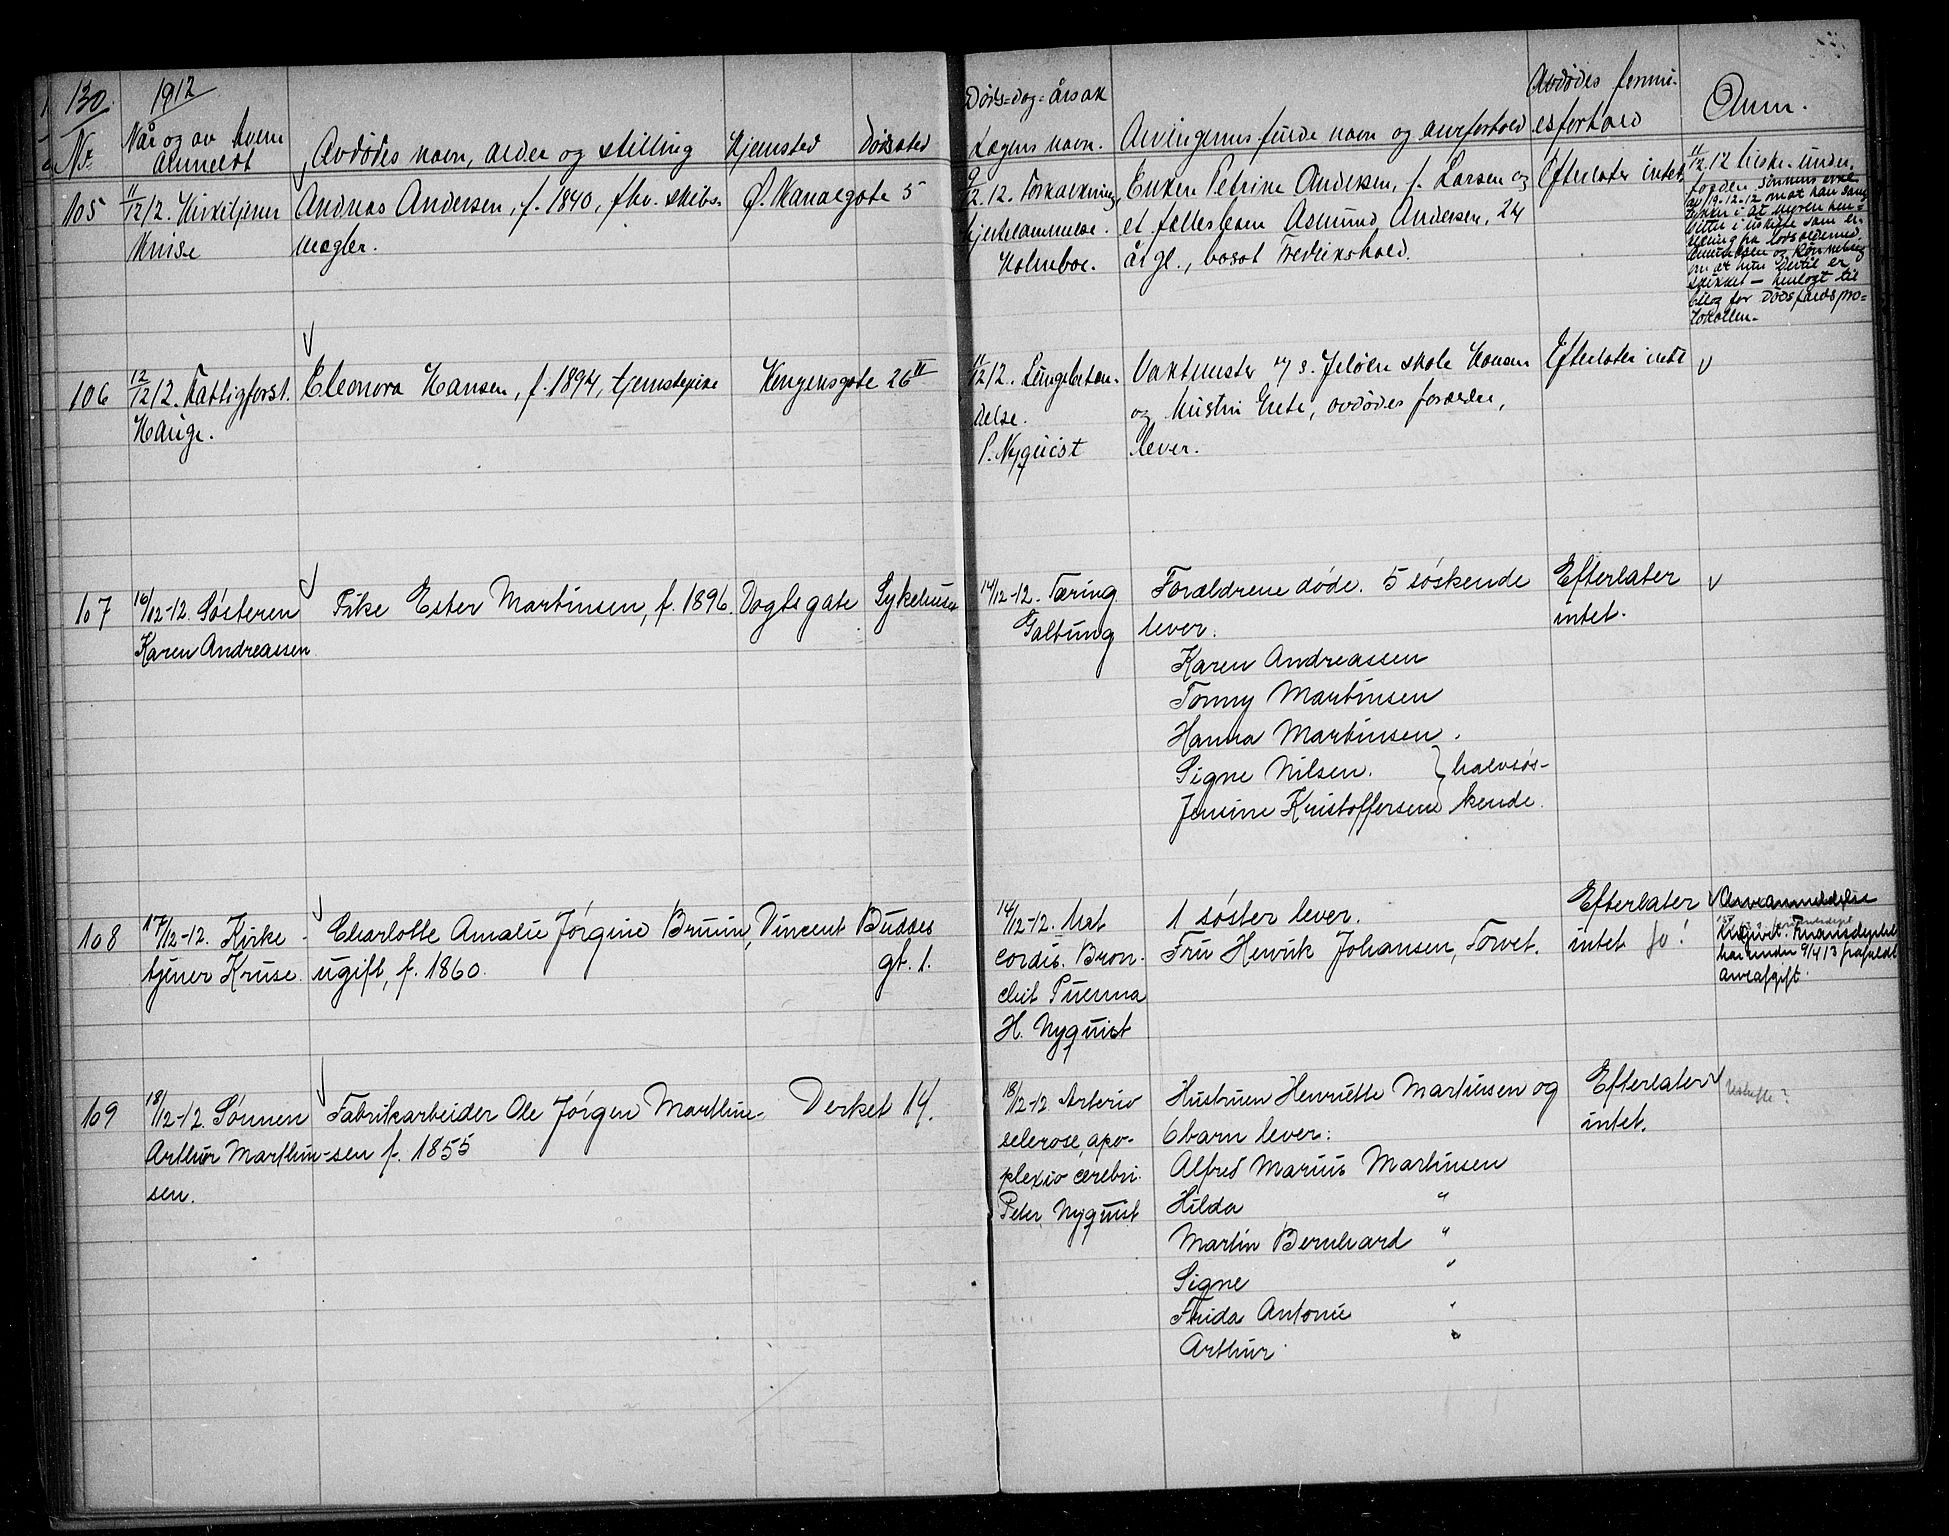 130. 1912
Nr.
Når og av hvem
anmeldt
Avdødes navn, alder og stilling
Hjemsted
Dødssted
Døds-dag-årsak
Lægens navn.
Arvingernes fulde navn og arveforhold
Avdødes formu-
esforhold
Anm.
105
11/12 12. Kirketjener
Kruse
Andreas Andersen, f. 1840, fhv. skibs-
mægler.
Ø. Kanalgate 5
9/12. 12. Forkalkning,
hjertelammelse.
Holmboe.
Enken Petrine Andersen, f. Larsen og
et fællesbarn Asmund Andersen, 24
år gl., bosat Fredrikshald.
Efterlater intet
11/12 12
av 19-12-12 om at han
om at
skikket – henlagt til
bilag for Dødsfaldspro-
tokollen.
106
12/12 12. Fattigforst.
Hauge.
Eleonora Hansen, f. 1894, tjenestepike
Kongensgate 26 II
11/12 12. Lungebetæn-
delse.
P. Nyquist
Vaktmester v/ s. Jeløen skole Hansen
og Hustru Grete, avdødes forældre,
lever.
Efterlater intet
107
16/12-12. Søsteren
Karen Andreassen
Pike Ester Martinsen, f. 1896.
Vogtsgate
Sykehuset
14/12-12. Tæring
Galtung
Forældrene døde. 5 søskende
lever.
Karen Andreassen
Tonny Martinsen
Hanna Martinsen.
Signe Nilsen. } halvsøs-
Jensine Kristoffersen } kende.
Efterlater
intet.
108
17/12-12. Kirke-
tjener Kruse
Charlotte Amalie Jørgine Bruun,
ugift, f. 1860.
Vincent Buddes
gt. 1.
14/12-12. Mat
cordis. Bron-
chit Pneuma
H. Nyquist
1 søster lever.
Fru Henrik Johansen, Torvet.
Efterlater
intet jo!
Arveanmeldelse
har under 9/4 13 frafaldt
arveafgift.
109
18/12-12. Sønnen
Arthur Marthin-
sen.
Fabrikarbeider Ole Jørgen Marthin-
sen f. 1855
Verket 14.
18/12-12 Arterio
sclerose, apo-
plexio cerebri.
Peter Nyquist
Hustruen Henriette Martinsen og
6 barn lever:
Alfred Marius Martinsen
Hilda "
Martin Bernhard "
Signe "
Frida Antonie "
Arthur "
Efterlater
intet.
Uskifte?